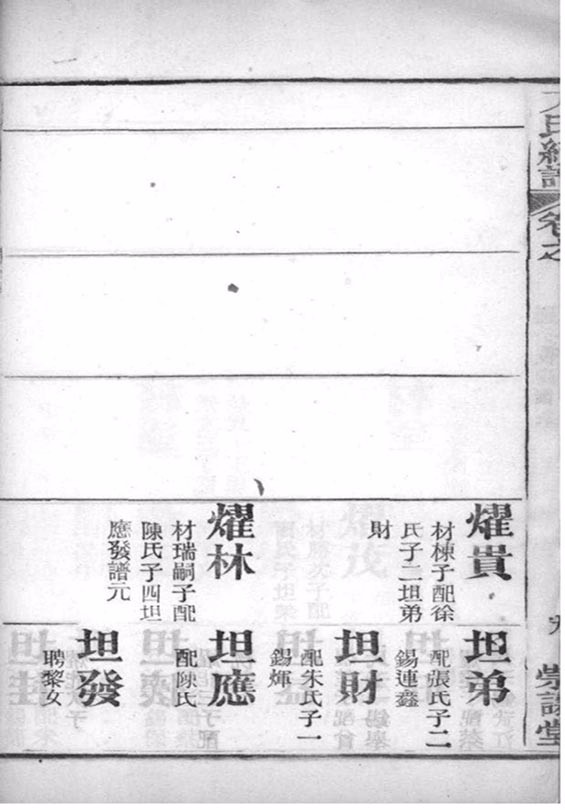 氏續譜
卷之
九
耀貴
材棟子配徐
氏子二坦弟
財
耀林
材瑞嗣子配
陳氏子四坦
應發譜元
坦弟
配張氏子二
錫連鑫
坦財
配朱氏子一
錫煇
坦應
配陳氏
坦發
聘黎女